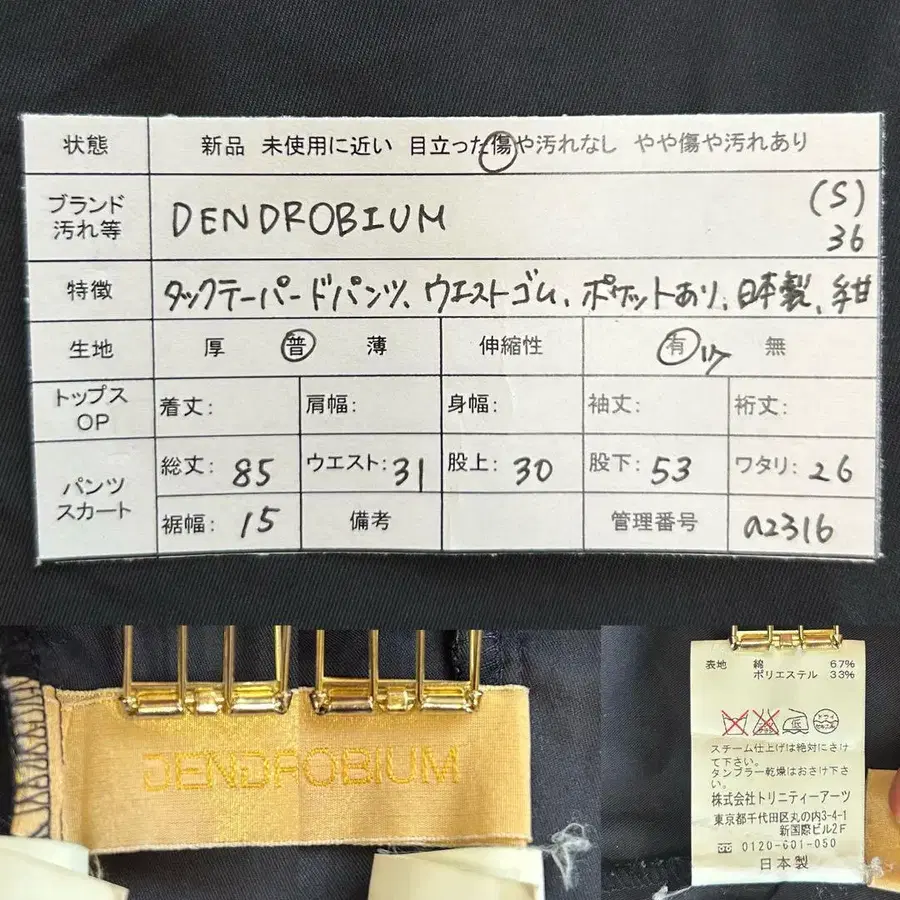 状態 新品 未使用に近い 目立った傷や汚れなし やや傷や汚れあり
ブランド
汚れ等
DENDROBIUM
(S)
36
特徴 タックテーパードパンツ、ウエストゴム、ポケットあり、日本製、紺
生地 厚 普 薄 伸縮性 有 無
トップス
OP
着丈: 肩幅: 身幅: 袖丈: 裄丈:
パンツ
スカート
総丈: 85 ウエスト: 31 股上: 30 股下: 53 ワタリ: 26
裾幅: 15 備考 管理番号 a2316
DENDROBIUM
表地 綿 67%
ポリエステル 33%
低
ドライ
スチーム仕上げは絶対にさけ
て下さい。
タンブラー乾燥はおさけ下さ
い。
株式会社トリニティーアーツ
東京都千代田区丸の内3-4-1
新国際ビル2F
0120-601-050
日本製